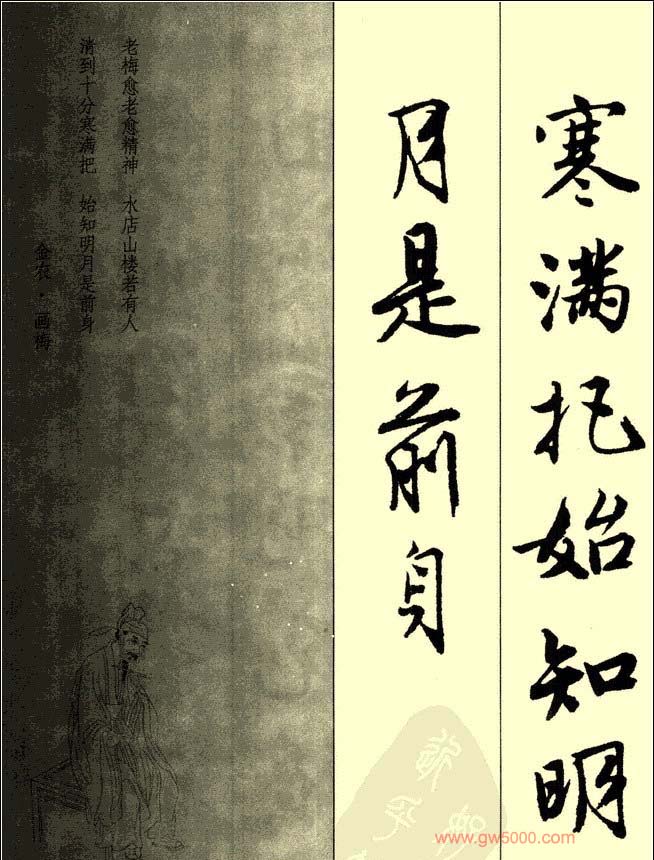 寒满把始知明
月是前身
老梅愈老愈精神 水店山楼若有人
清到十分寒满把 始知明月是前身
金农·画梅
www.gw5000.com